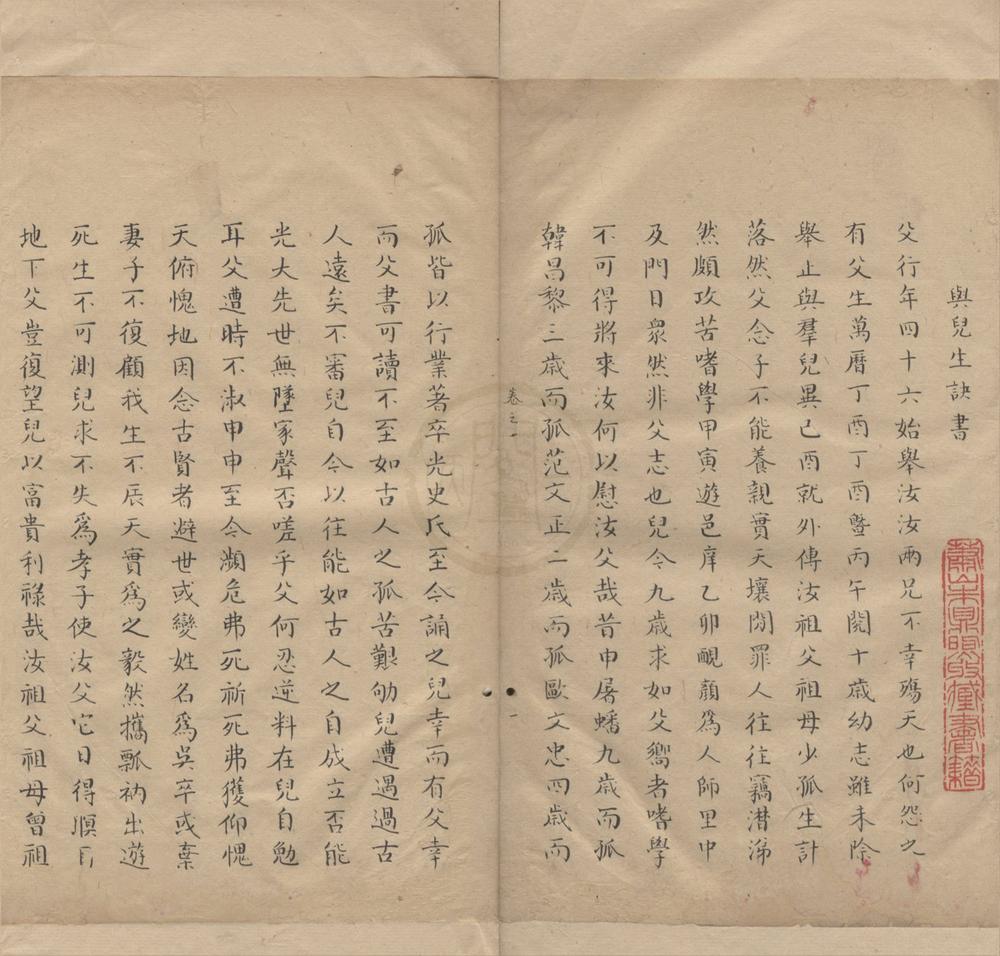 與兒生訣書
父行年四十六始舉汝汝兩兄不幸殤天也何怨之
有父生萬曆丁酉丁酉曁丙午閱十歳幼志雖未除
舉止與羣兒異己酉就外傳汝祖父祖母少孤生計
落然父念子不能養親實天壤閒罪人往往竊潸涕
然頗攻苦嗜學甲寅遊邑庠乙卯靦顏爲人師里中
及門日衆然非父志也兒今九歲求如父嚮者嗜學
不可得將來汝何以慰汝父哉昔申屠蟠九歲而孤
韓昌黎三歲而孤范文正二歲而孤歐文忠四歲而
卷之一
一
孤皆以行業著卒光史氏至今誦之兒幸而有父幸
而父書可讀不至如古人之孤苦艱劬兒遭遇過古
人遠矣不審兒自今以往能如古人之自成立否能
光大先世無墜家聲否嗟乎父何忍逆料在兒自勉
耳父遭時不淑申申至今瀕危弗死祈死弗獲仰愧
天俯愧地因念古賢者避世或變姓名爲吳卒或棄
妻子不復顧我生不辰天實爲之毅然攜瓢衲出遊
死生不可測兒求不失爲孝子使汝父它日得瞑目
地下父豈復望兒以富貴利祿哉汝祖父祖母曾祖